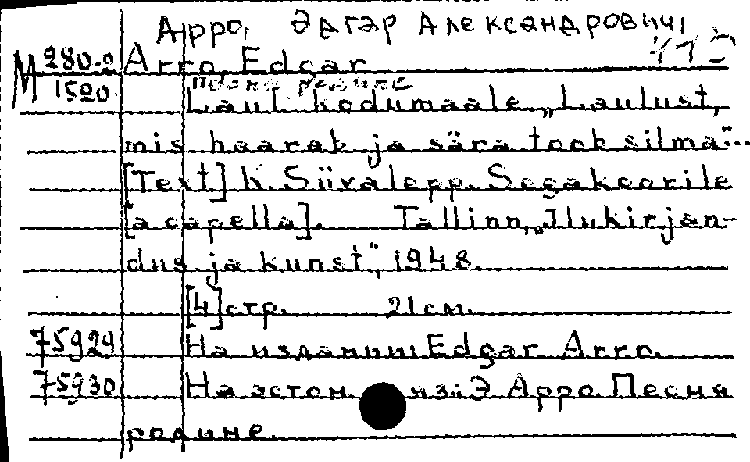 Арро, Эдгар Александрович
М 280-2 Arro Edgar
1520 Песня родине
Laul kodumaale. „Laulust,
mis haarab ja sära toob silma"...
[Text] K. Siivalepp. Segakoorile
[a capella]. Tallinn, „Ilukirjan-
dus ja kunst", 1948.
[4] стр. 21 см.
75929 На издании Edgar Arro.
75930 На эстон. яз. Э Арро. Песня
родине.